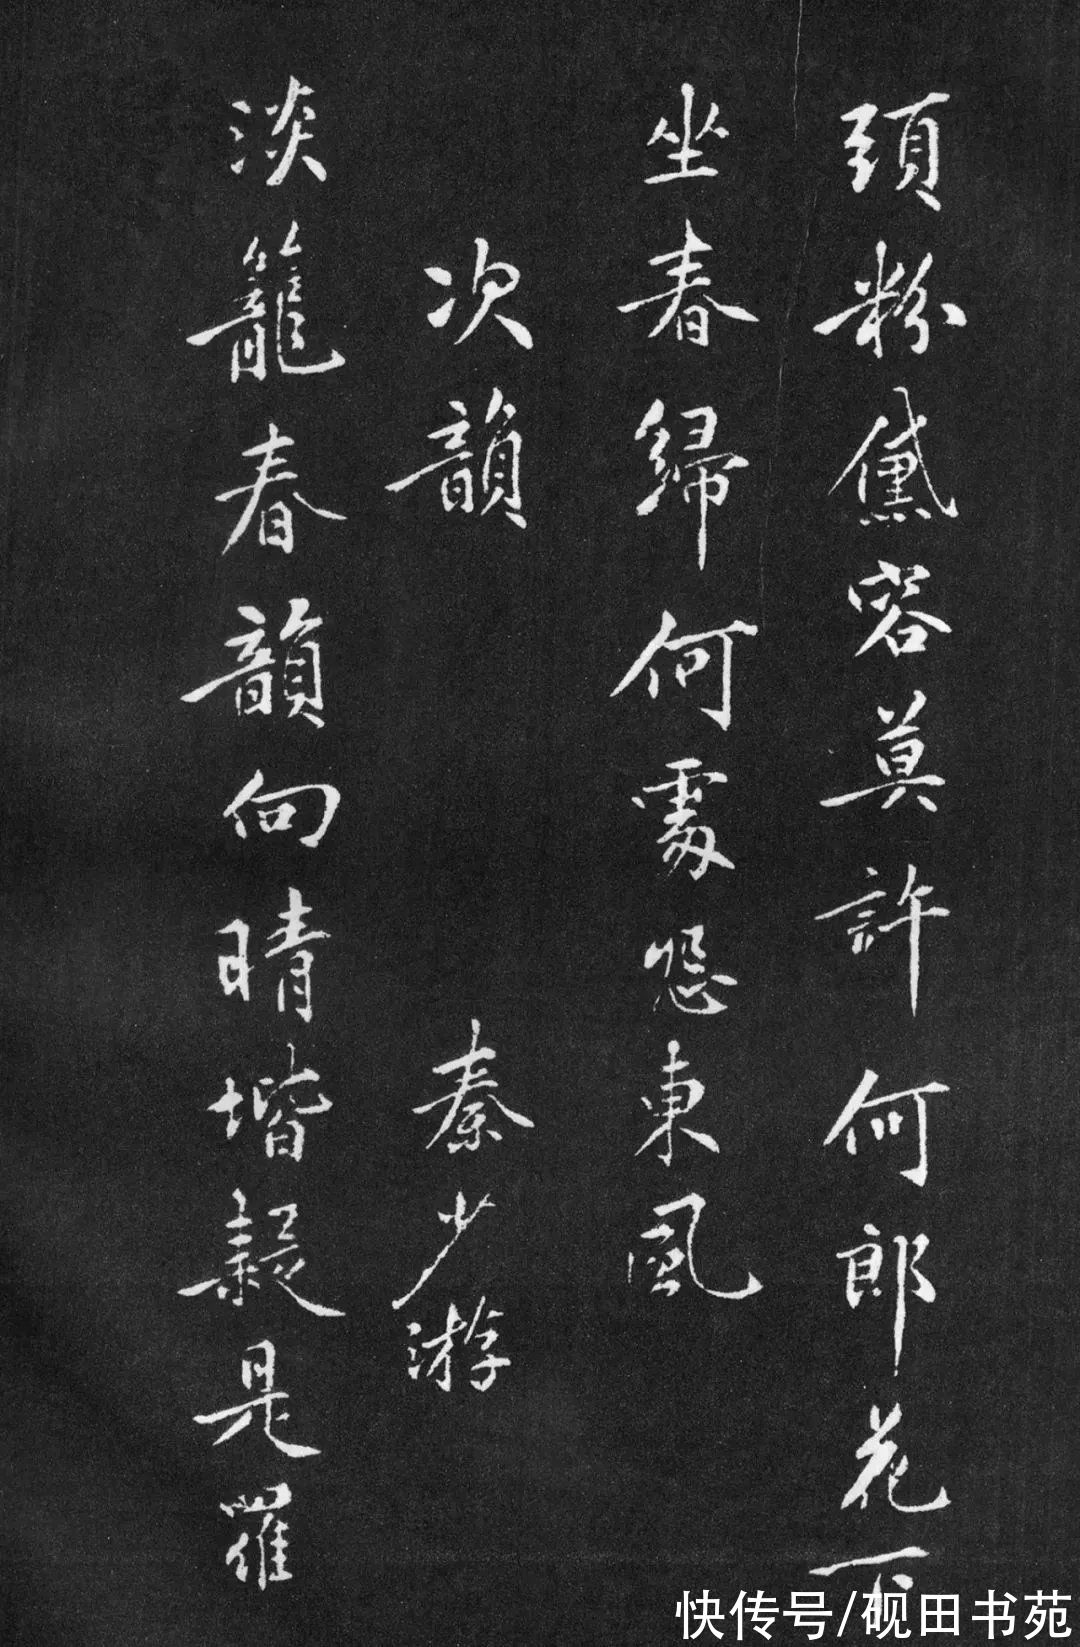 頭粉黛容莫許何郎花下
坐春歸何處怨東風
次韻 秦少游
淡籠春韻向晴堦疑是羅
快传号/砚田书苑